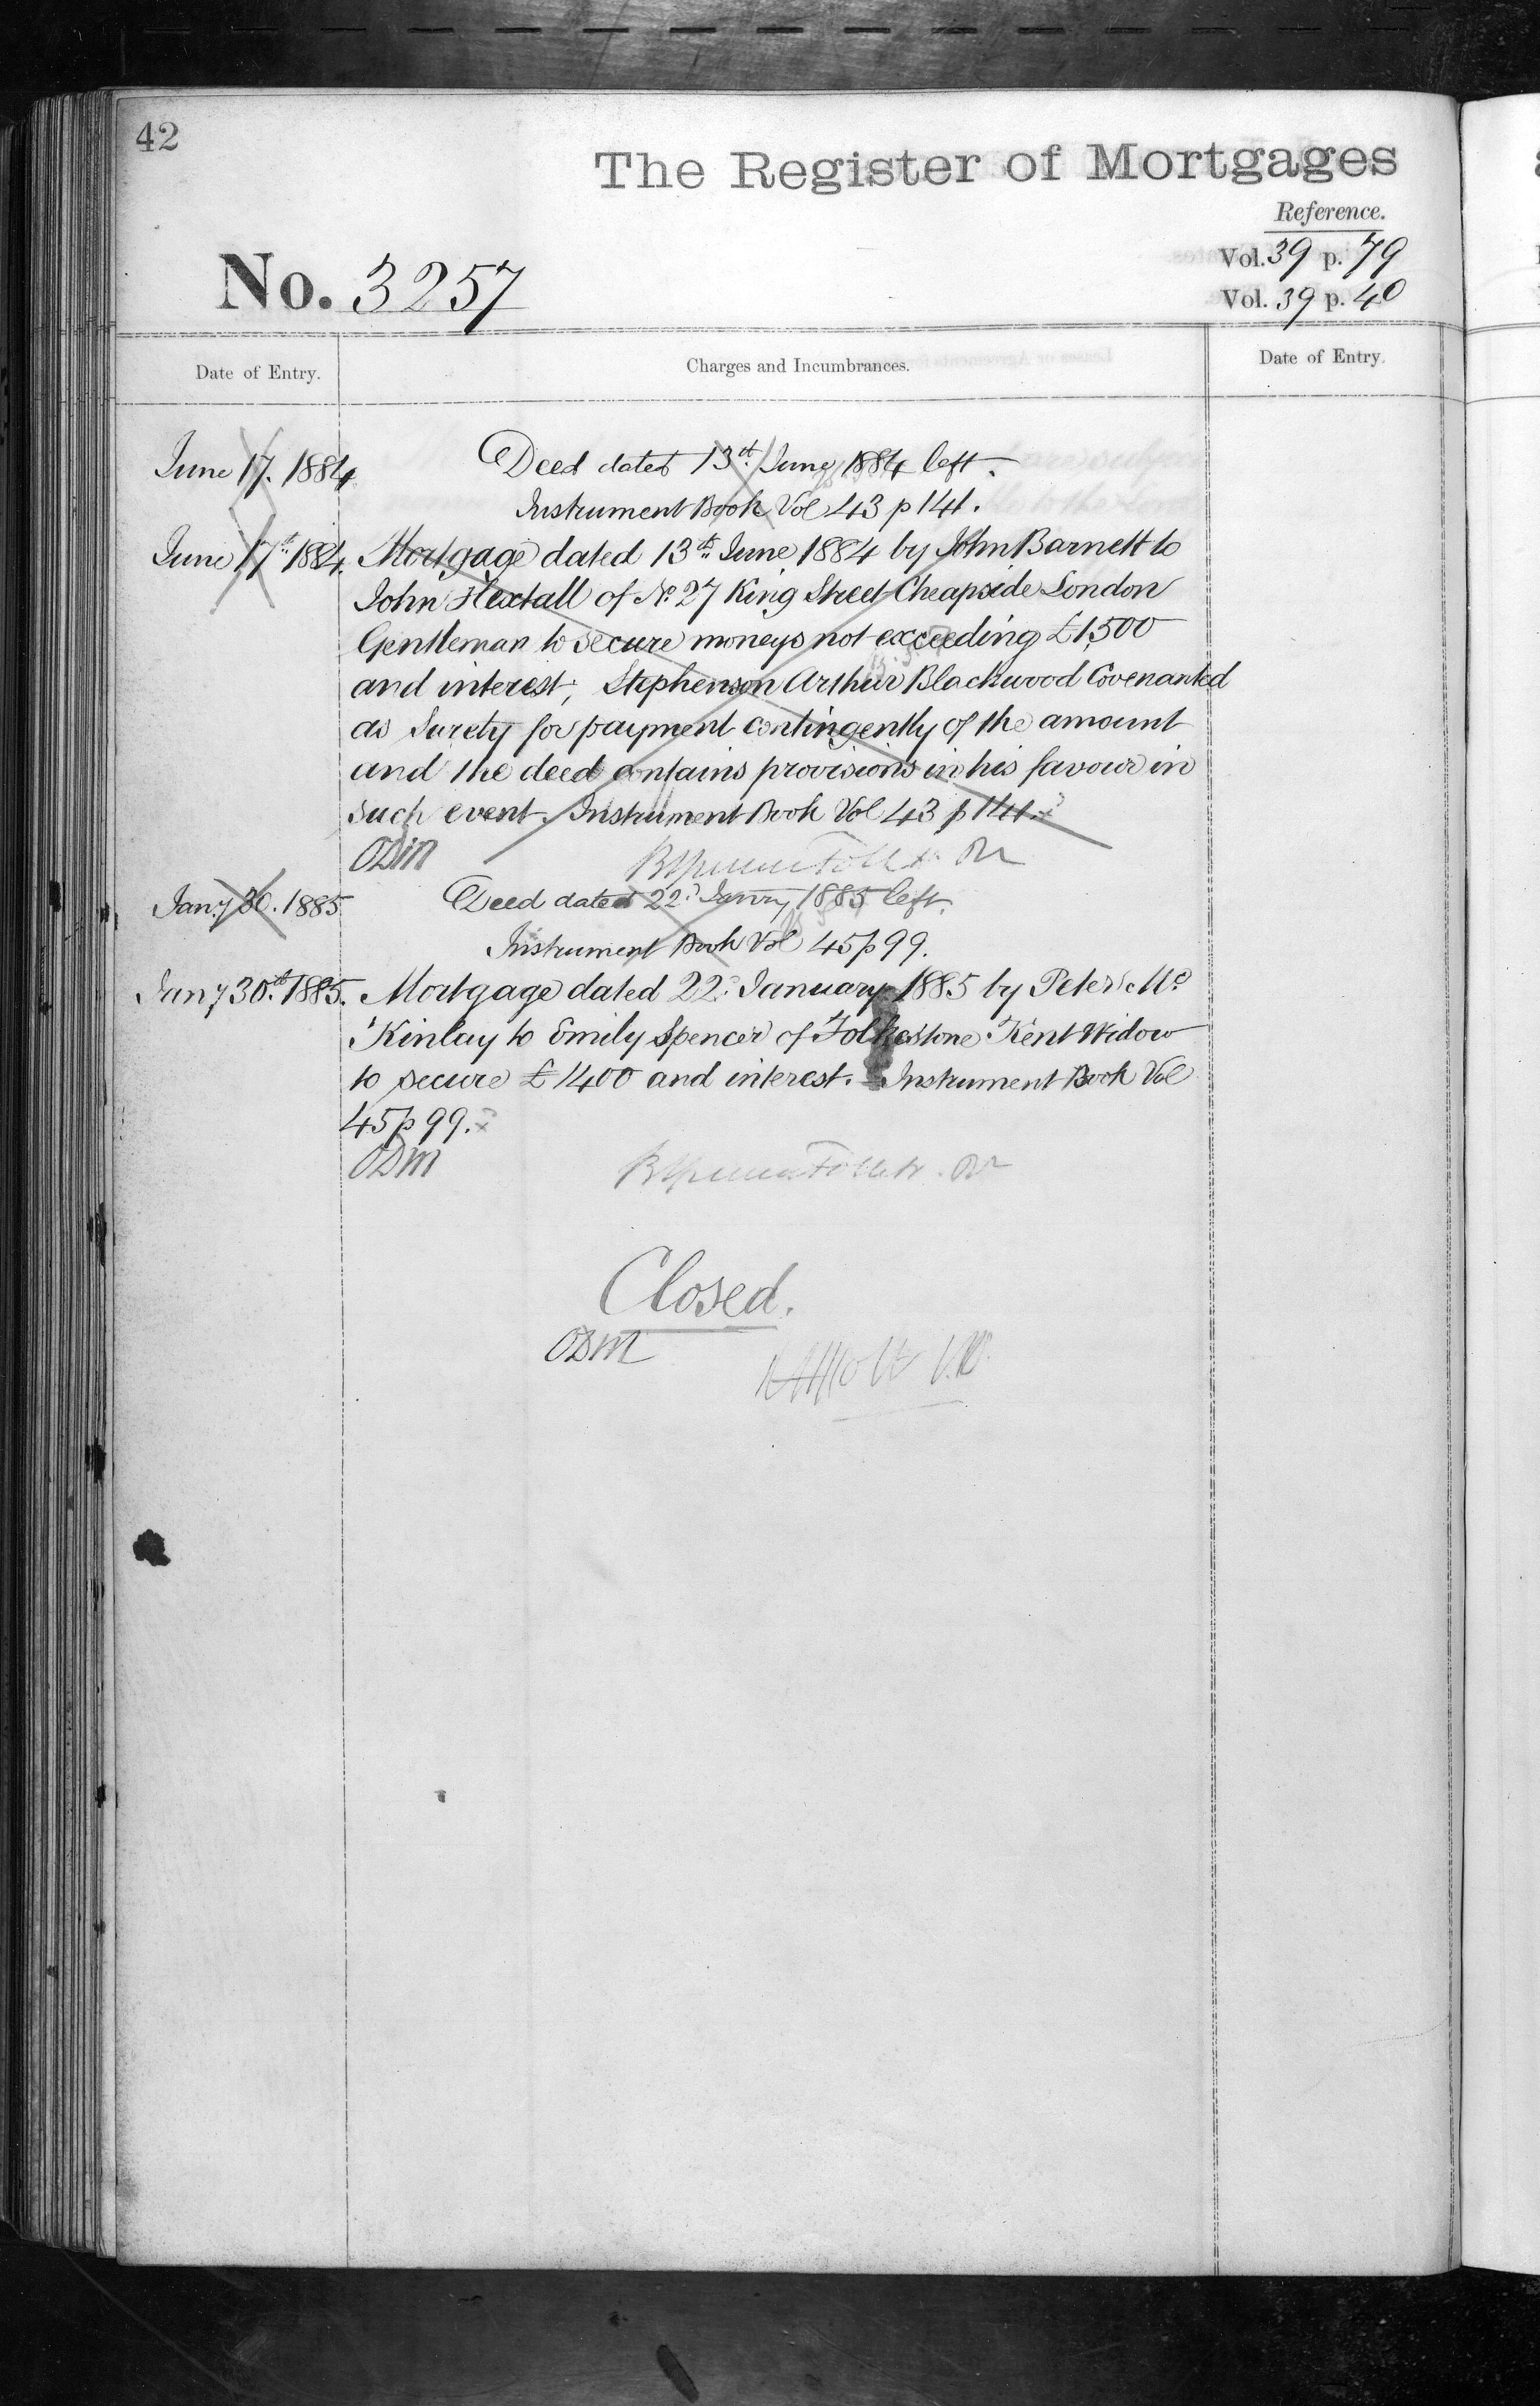 42
The Register of Mortgages
Reference.
Vol. 39 p. 79
No. 3257
Vol. 39 p. 40
Date of Entry.
Charges and Incumbrances.
Date of Entry.
June 17. 1884
Deed dated 13th June 1884 left.
Instrument Book Vol 43 p 141.
June 17th 1884. Mortgage dated 13th June 1884 by John Barnett to
John Hextall of No. 27 King Street Cheapside London
Gentleman to secure moneys not exceeding £1,500
and interest; Stephenson Arthur Blackwood Covenanted
as Surety for payment contingently of the amount
and the deed contains provisions in his favour in
such event. Instrument Book Vol 43 p 141.
ODM
Jany 30. 1885
Deed dated 22d Janry 1885 left.
Instrument Book Vol 45 p 99.
Jany 30th 1885. Mortgage dated 22d January 1885 by Peter Mc
Kinlay to Emily Spencer of Folkestone Kent Widow
to secure £1400 and interest. Instrument Book Vol
45 p 99.
ODM
Closed.
ODM